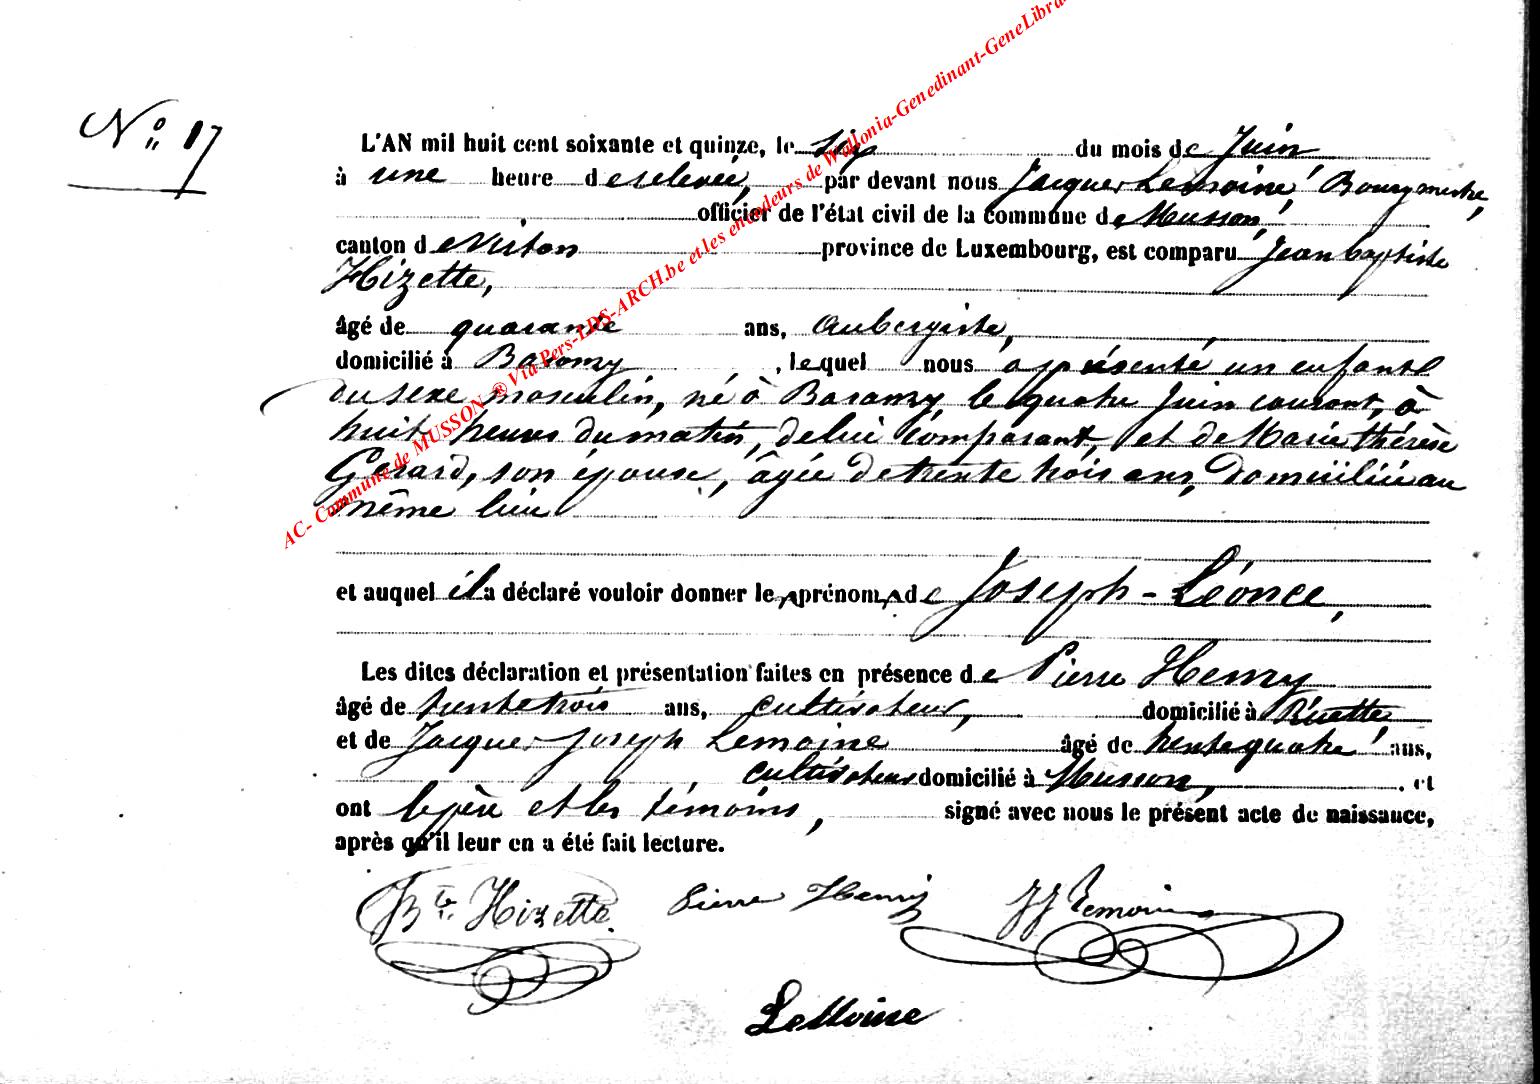 N° 17
L'AN mil huit cent soixante et quinze, le six du mois de Juin
à une heure de relevée, par devant nous Jacques Lemoine, Bourgmestre,
officier de l'état civil de la commune de Musson,
canton de Virton province de Luxembourg, est comparu Jean baptiste
Hizette,
âgé de quarante ans, aubergiste,
domicilié à Baranzy, lequel nous a présenté un enfant
du sexe masculin, né à Baranzy le quatre Juin courant, à
huit heures du matin, de lui comparant, et de Marie thérèse
Gérard, son épouse, âgée de trente trois ans, domiciliée au
même lieu
et auquel il a déclaré vouloir donner les prénoms de Joseph-Léonce,
Les dites déclaration et présentation faites en présence de Pierre Henry
âgé de trente trois ans, cultivateur, domicilié à
et de Jacques Joseph Lemoine âgé de trente quatre ans,
cultivateur domicilié à Musson, et
ont le père et les témoins, signé avec nous le présent acte de naissance,
après qu'il leur en a été fait lecture.
JBte Hizette Pierre Henry JJ Lemoine
LeMoine
AC- Commune de MUSSON ® Via Pers-LDS-ARCH.be et les encodeurs de Wallonia-Genedinant-GeneLibra